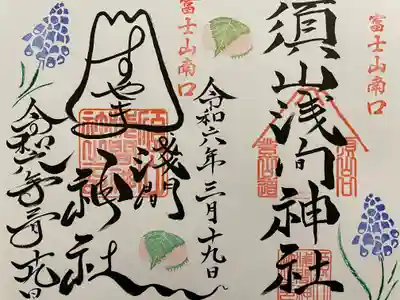 富士山南口
須山浅間神社
令和六年三月十九日
富士山南口
すやま
浅間
神社
令和六年三月十九日